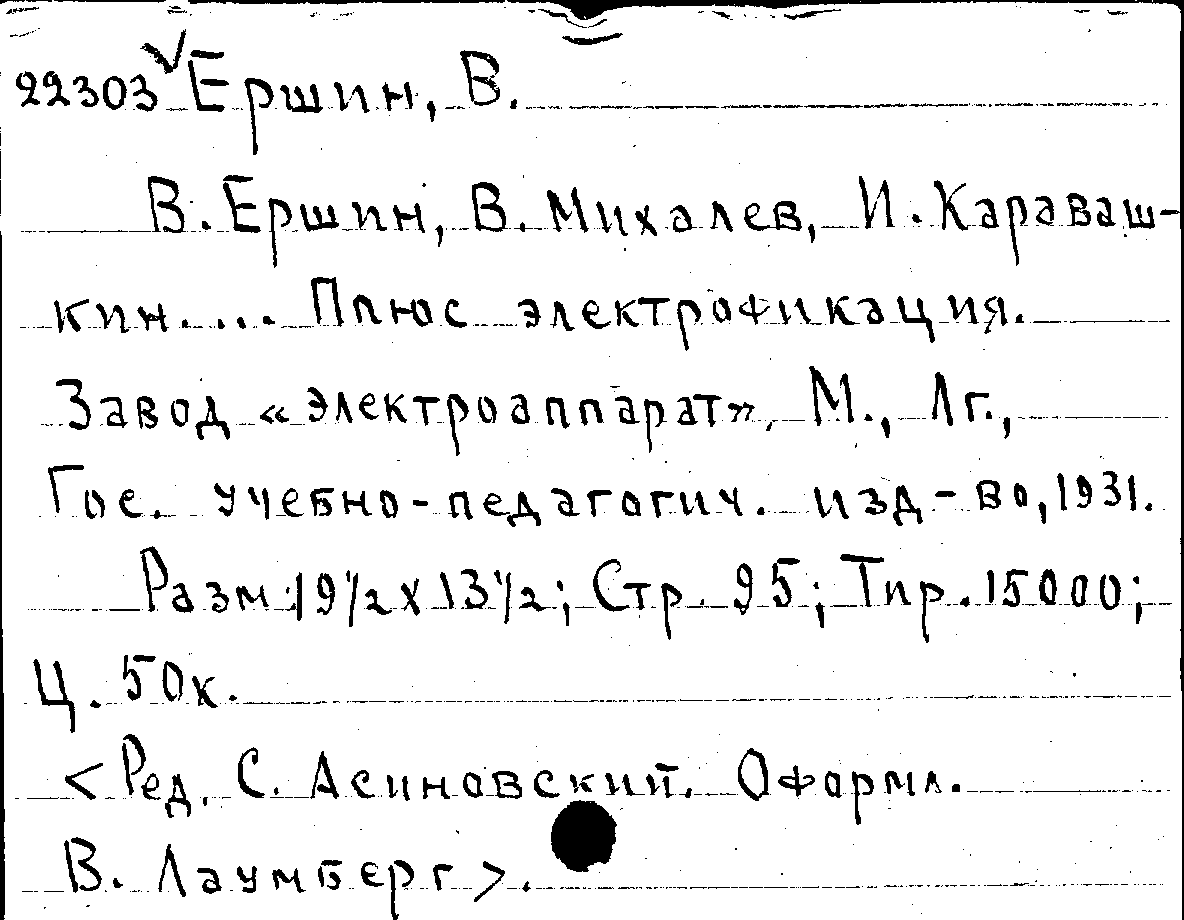 22303 √ Ершин, В.
В. Ершин, В. Михалев, И. Караваш-
кин.... Плюс электрофикация.
Завод «электроаппарат», М., Лг.,
Гос. учебно-педагогич. изд-во, 1931.
Разм. 19 1/2 x 13 1/2; Стр. 95; Тир. 15000;
Ц. 50к.
<Ред. С. Асиновский. Оформл.
В. Лаумберг>.